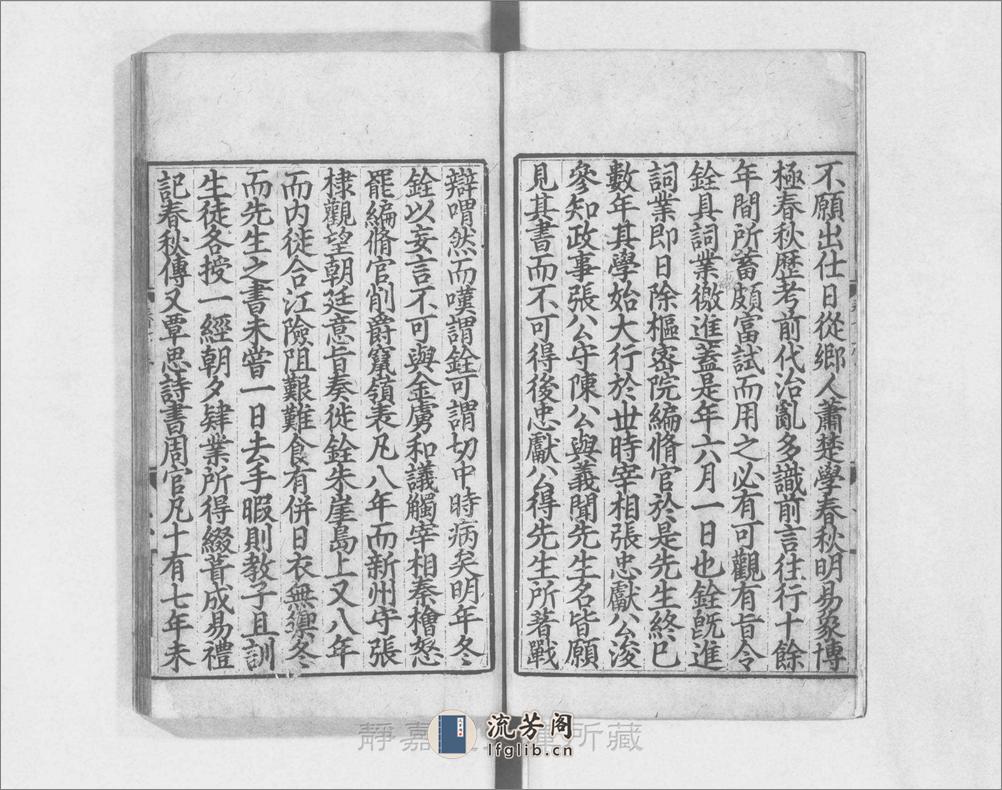 不願出仕日從鄉人蕭楚學春秋明易象博
極春秋歷考前代治亂多識前言往行十餘
年間所蓄頗富試而用之必有可觀有旨令
銓具詞業繳進蓋是年六月一日也銓旣進
詞業即日除樞密院編脩官於是先生終已
數年其學始大行於丗時宰相張忠獻公浚
參知政事張公守陳公與義聞先生名皆願
見其書而不可得後忠獻公得先生所著戰
辯喟然而嘆謂銓可謂切中時病矣明年冬
銓以妄言不可與金虜和議觸宰相秦檜怒
罷編脩官削爵竄嶺表凡八年而新州守張
棣觀望朝廷意旨奏徙銓朱崖島上又八年
而內徙合江險阻艱難食有併日衣無禦冬
而先生之書未嘗一日去手暇則敎子且訓
生徒各授一經朝夕肄業所得綴葺成易禮
記春秋傳又覃思詩書周官凡十有七年未
靜嘉 所藏
流芳阁
lfglib.cn